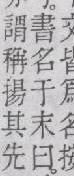 皆爲名
書名于末曰。
謂稱揚其先